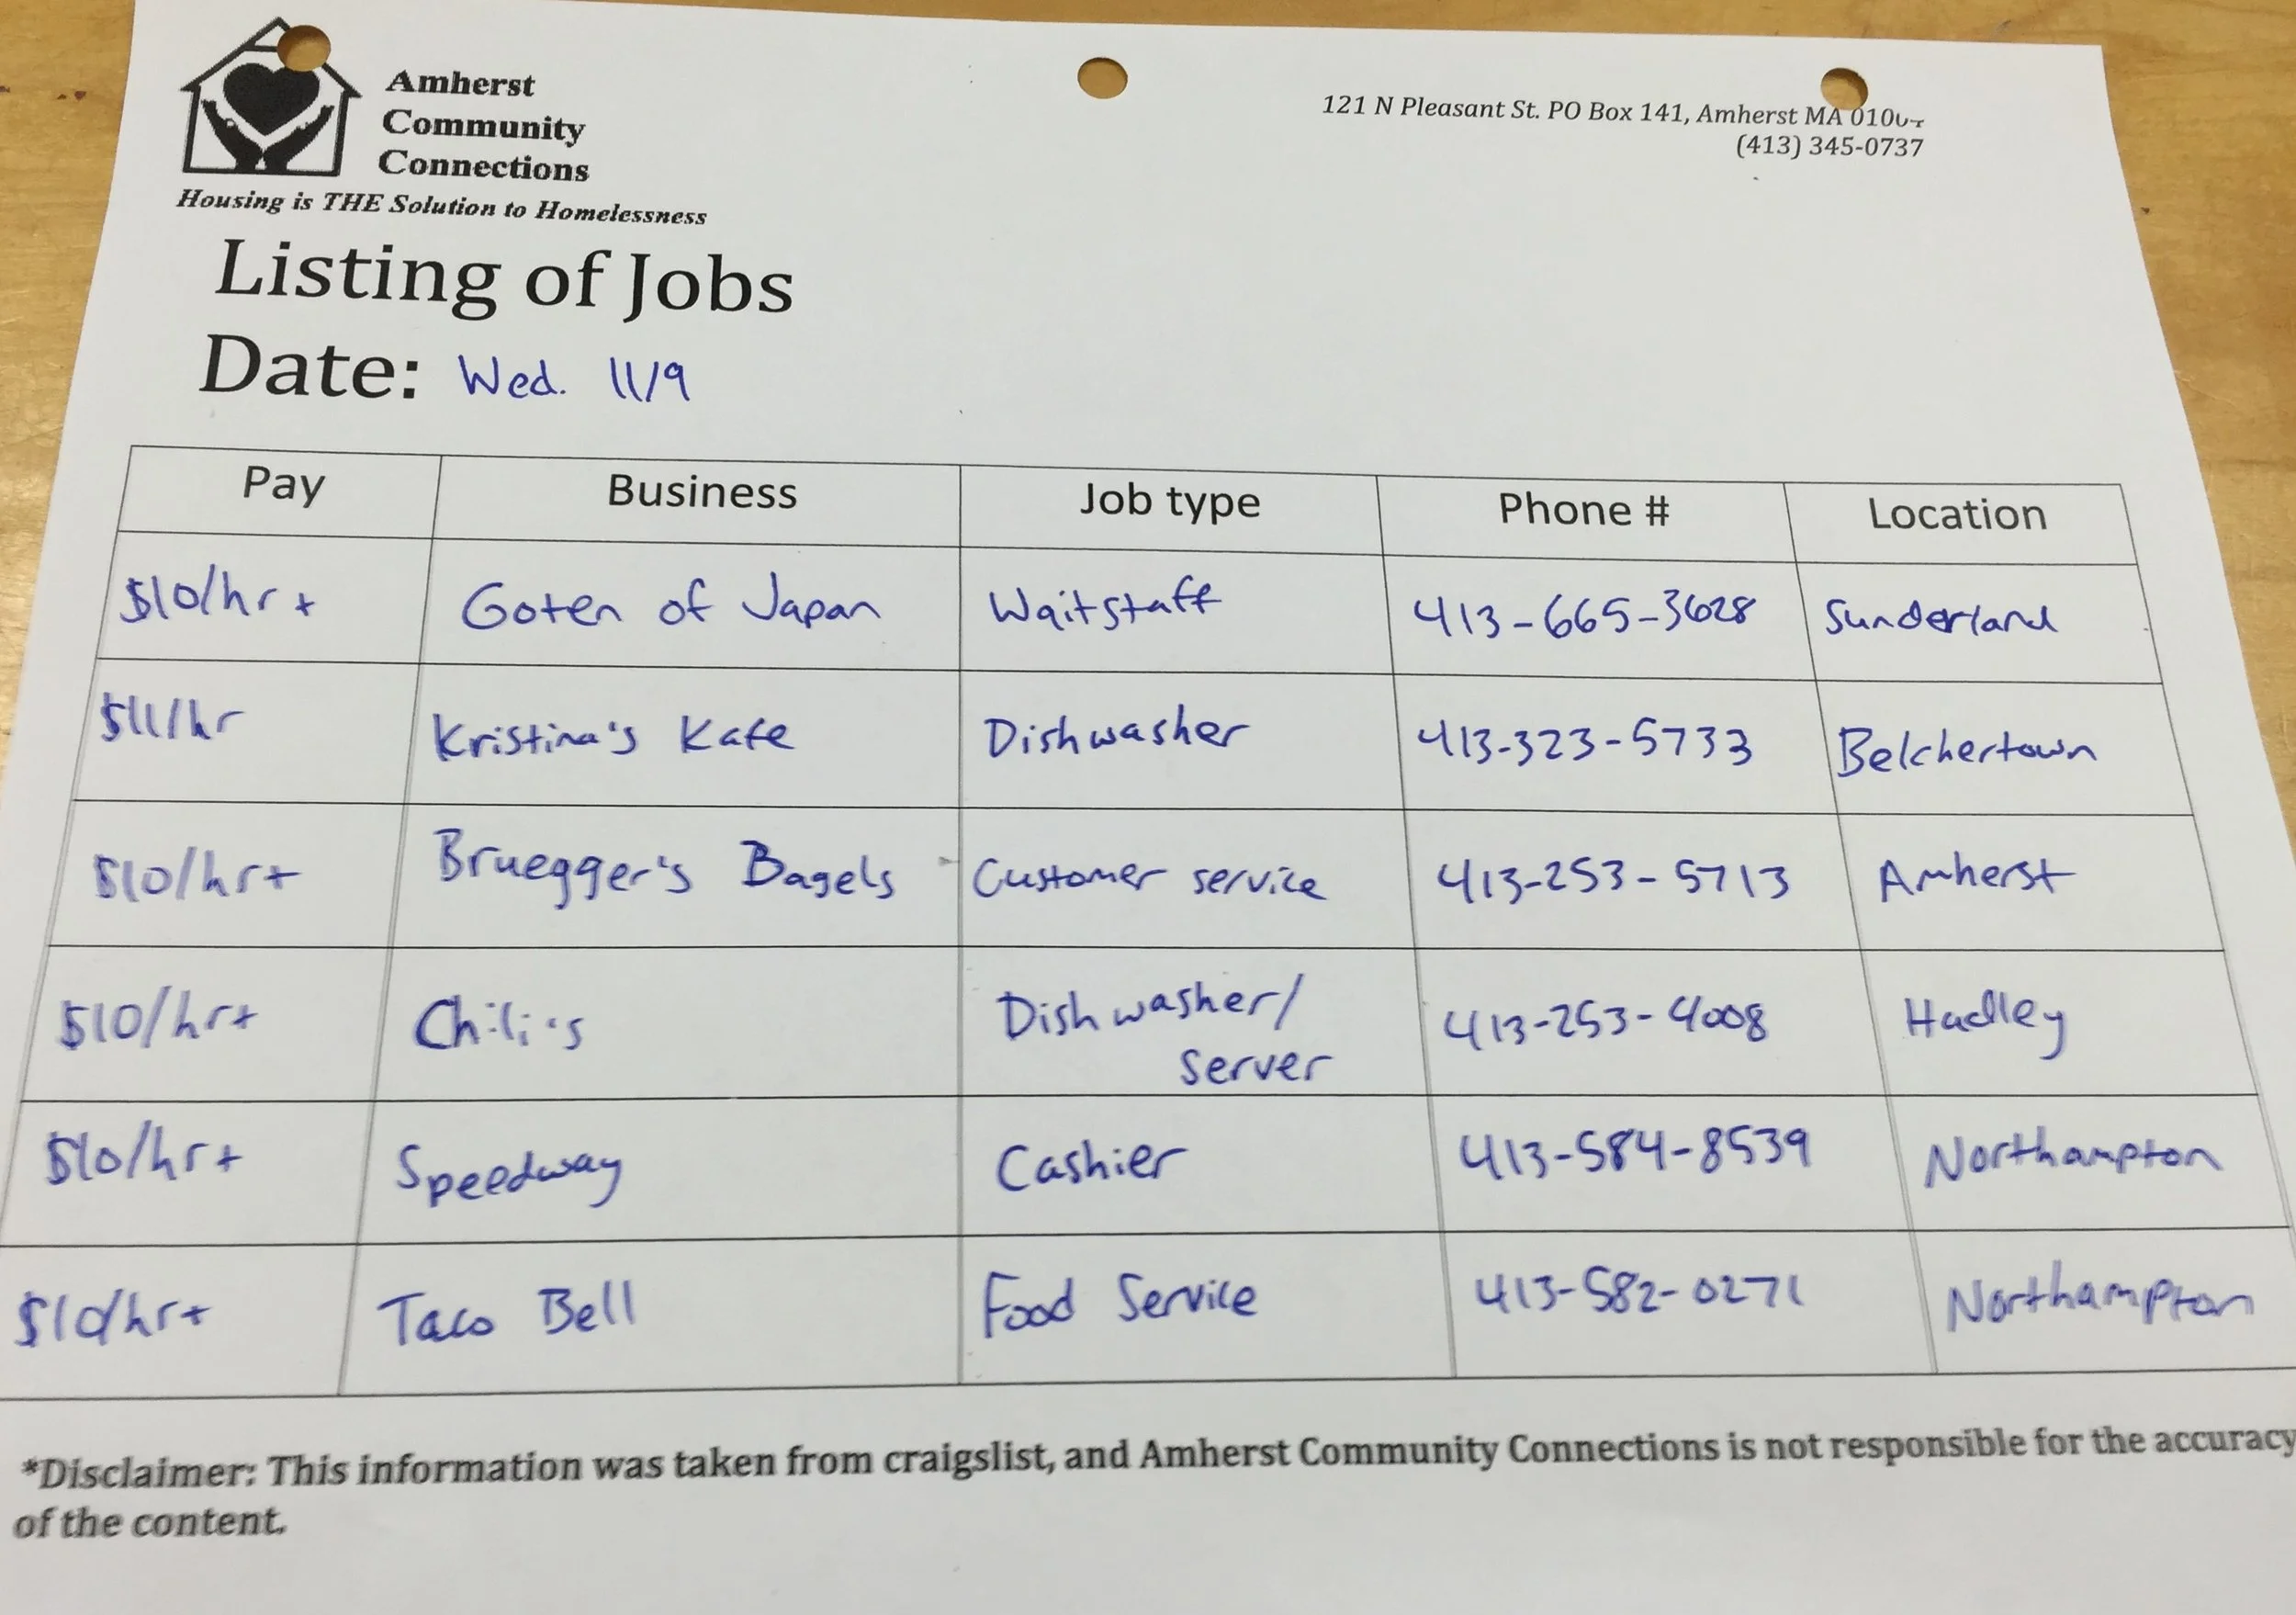 Amherst
Community
Connections
Housing is THE Solution to Homelessness
121 N Pleasant St. PO Box 141, Amherst MA
(413) 345-0737
Listing of Jobs
Date: Wed. 11/9
Pay Business Job type Phone # Location
$10/hr + Goten of Japan Waitstaff 413-665-3628 Sunderland
$11/hr Kristina's Kafe Dishwasher 413-323-5733 Belchertown
$10/hr+ Bruegger's Bagels Customer service 413-253-5713 Amherst
$10/hr+ Chili's Dishwasher/ 413-253-4008 Hadley
server
$10/hr+ Speedway Cashier 413-584-8539 Northampton
$10/hr+ Taco Bell Food Service 413-582-0271 Northampton
*Disclaimer: This information was taken from craigslist, and Amherst Community Connections is not responsible for the accuracy
of the content.